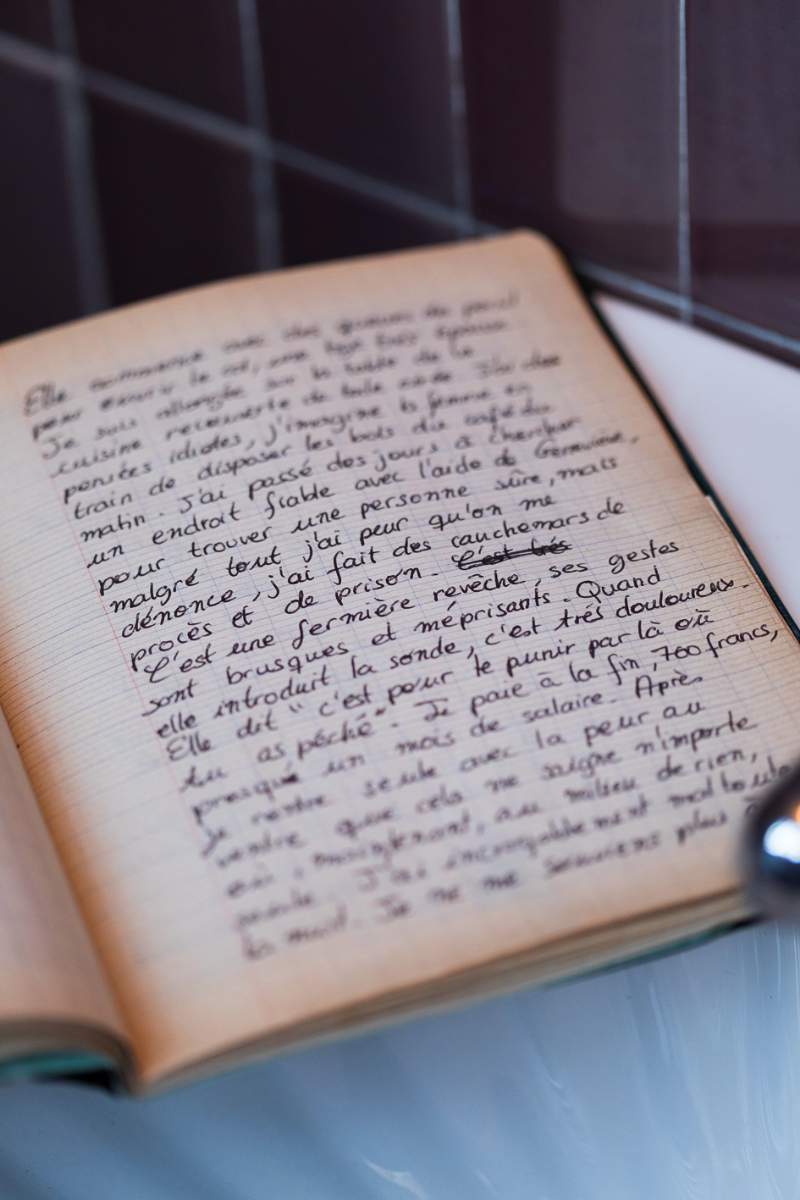 Elle commence avec des queues de persil
pour ouvrir le col, une fois
Je suis allongée sur la table de la
cuisine recouverte de toile cirée. J'ai des
pensées idiotes, j'imagine la femme en
train de disposer les bols du café du
matin. J'ai passé des jours à chercher
un endroit fiable avec l'aide de Geneviève,
pour trouver une personne sûre, mais
malgré tout j'ai peur qu'on me
dénonce, j'ai fait des cauchemars de
procès et de prison. C'est trés
C'est une fermière revêche, ses gestes
sont brusques et méprisants. Quand
elle introduit la sonde, c'est trés douloureux.
Elle dit "c'est pour te punir par là où
tu as péché". Je paie à la fin, 700 francs,
presque un mois de salaire. Après
je rentre seule avec la peur au
ventre que cela ne saigne n'importe
où, maintenant, au milieu de rien,
seule. J'ai incroyablement mal toute
la nuit. Je ne me souviens plus